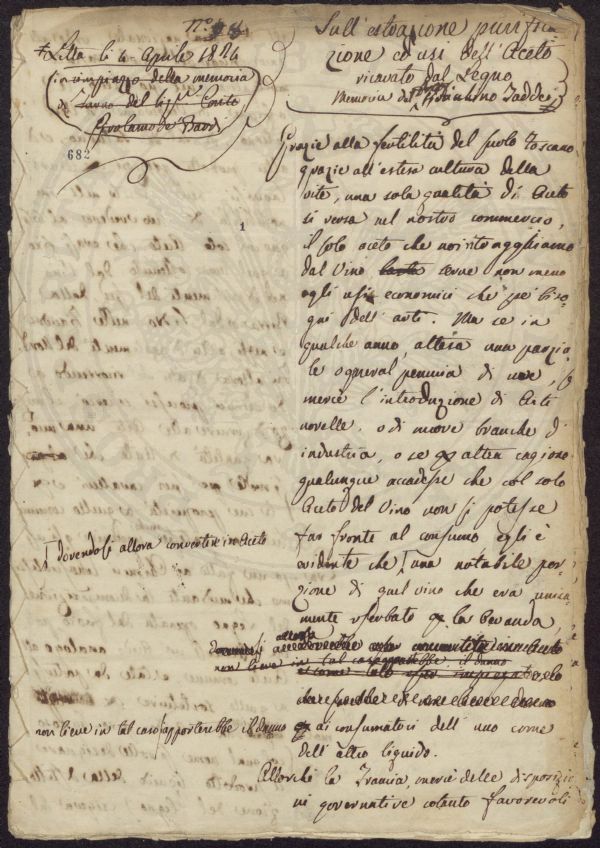 n.°
Letta li 4. Aprile 1824
in rimpiazzo della memoria
di turno del Sig.r Conte
Girolamo de' Bardi
682
1
Sull'estrazione purifica
zione ed usi dell'Aceto
ricavato dal Legno
Memoria del Giovacchino Taddei
Grazie alla fertilità del suolo Toscano
grazie all'estesa cultura della
vite, una sola qualità di Aceto
si versa nel nostro commercio,
il solo aceto che noi ritragghiamo
dal Vino serve non meno
agli usi economici che pe' biso-
gni dell'arti. Ma se in
qualche anno, attesa una parzia-
le o general penuria di uve, o
mercè l'introduzione di Arti
novelle, o di nuove branche d'
industria, o se p altra cagione
qualunque accadesse che col solo
Aceto del Vino non si potesse
far fronte al consumo egli è
evidente che una notabile por-
zione di quel vino che era unica-
mente riserbato p la bevanda,
dovendosi allora convertire in Aceto
dovendosi allora convertito in Aceto
non lieve in tal caso apporterebbe il danno
non lieve in tal caso apporterebbe il danno
ai consumatori dell'uno come
dell'altro liquido.
Allorchè la Francia, mercè delle disposizio
ni governative cotanto favorevoli